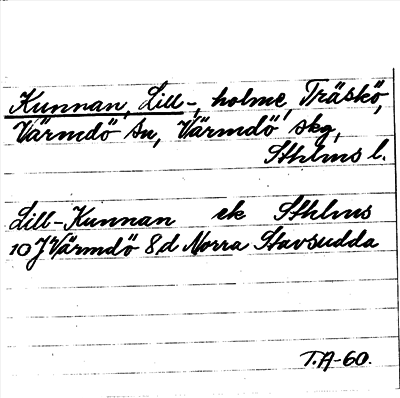 Kunnan, Lill-, holme, Träskö,
Värmdö sn, Värmdö skg,
Sthlms l.
Lill-Kunnan ek Sthlms
10 J Värmdö 8 d Norra Stavsudda
T.A-60.